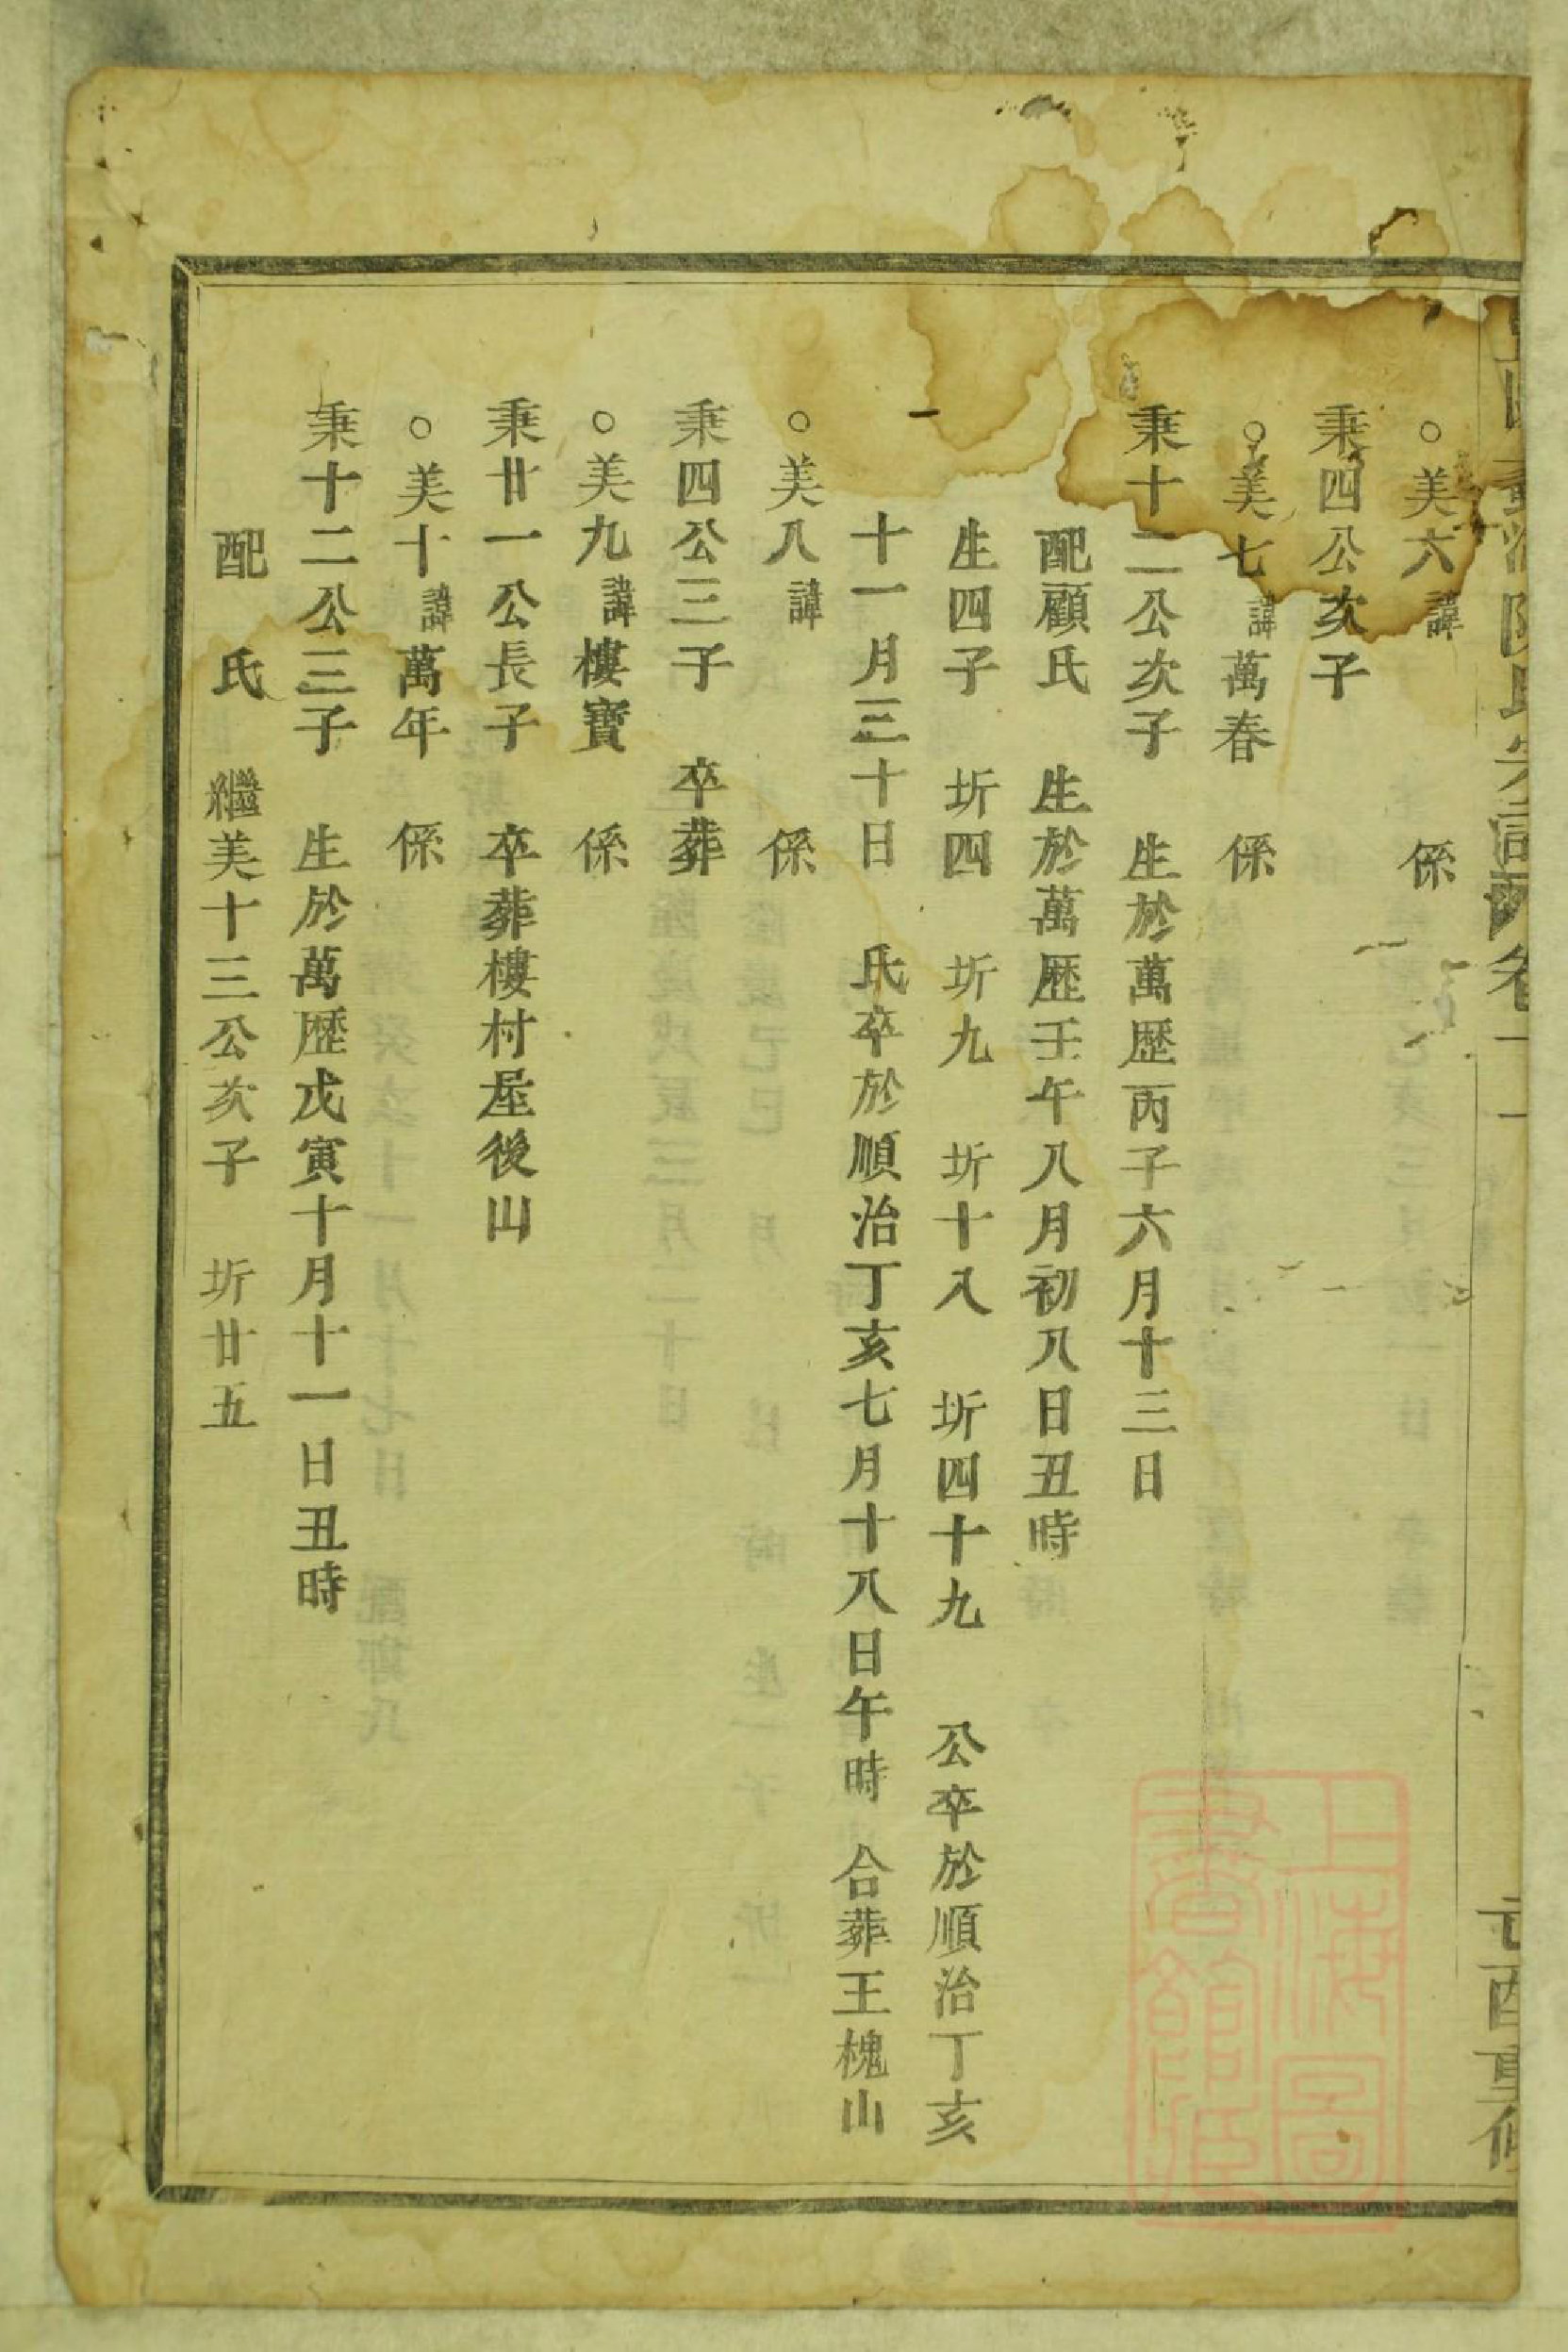 陳氏宗譜卷十一
辛酉重修
○美六諱 係
秉四公次子
○美七諱萬春 係
秉十二公次子 生於萬歷丙子六月十三日
配顧氏 生於萬歷壬午八月初八日丑時
生四子 圻四 圻九 圻十八 圻四十九 公卒於順治丁亥
十一月三十日 氏卒於順治丁亥七月十八日午時 合葬王槐山
○美八諱 係
秉四公三子 卒葬
○美九諱樓寶 係
秉廿一公長子 卒葬樓村屋後山
○美十諱萬年 係
秉十二公三子 生於萬歷戊寅十月十一日丑時
配 氏 繼美十三公次子 圻廿五
上海圖
書館藏